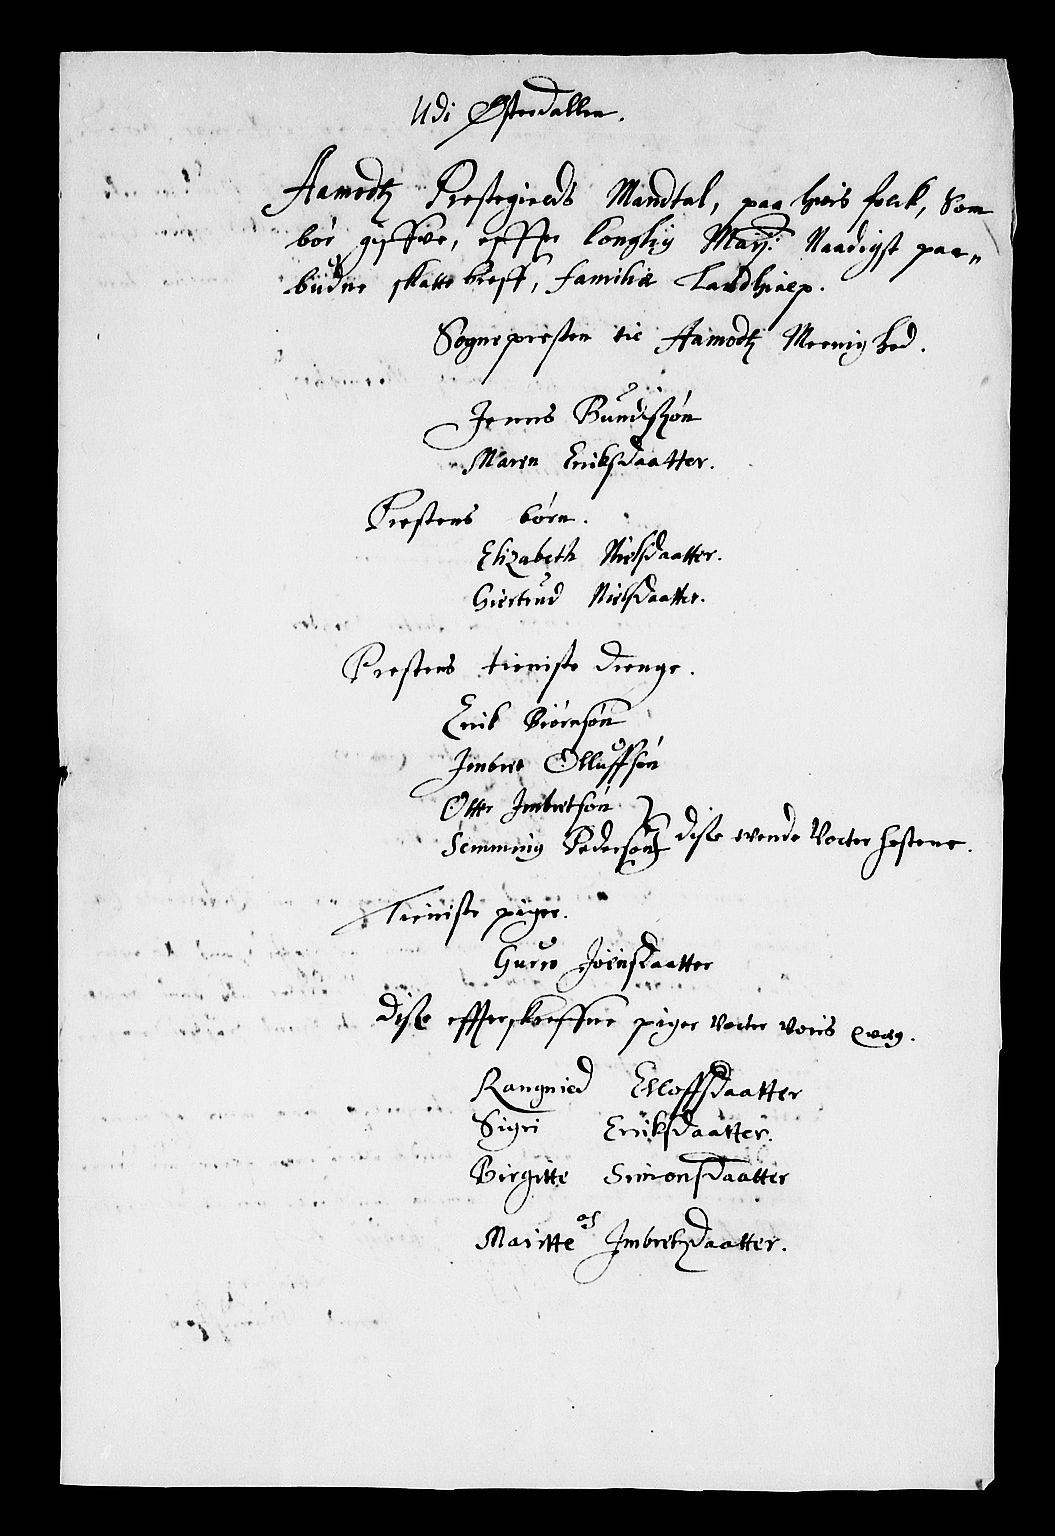 Udi Østerdallen.
Aamodtz Prestegields Mandtal, paa hvis folck, Som
bør gifftve, effter konglig Mayst: Naadigst paa„
budne skatte breff, familiæ Landhielp.
Sognepresten til Aamodtz Meenighed.
Jenns Bundtszøn
Maren Eriksdaatter.
Prestens børn.
Elizabeth Nielsdaatter.
Giertrud Nielsdaatter.
Prestens tieniste drenge.
Erik Biørnsøn
Imbret Olluffsøn
Otter Imbretsøn
Semming Pedersøn disse vender Vocter hestene.
Tieniste piger.
Guro Joensdaatter
Disse effterskreffne piger Vocter Voris qvæg.
Rangnied Elloffsdaatter
Sigri Eriksdaatter.
Birgitte Simonsdaatter
Maritte Imbretzdaatter.